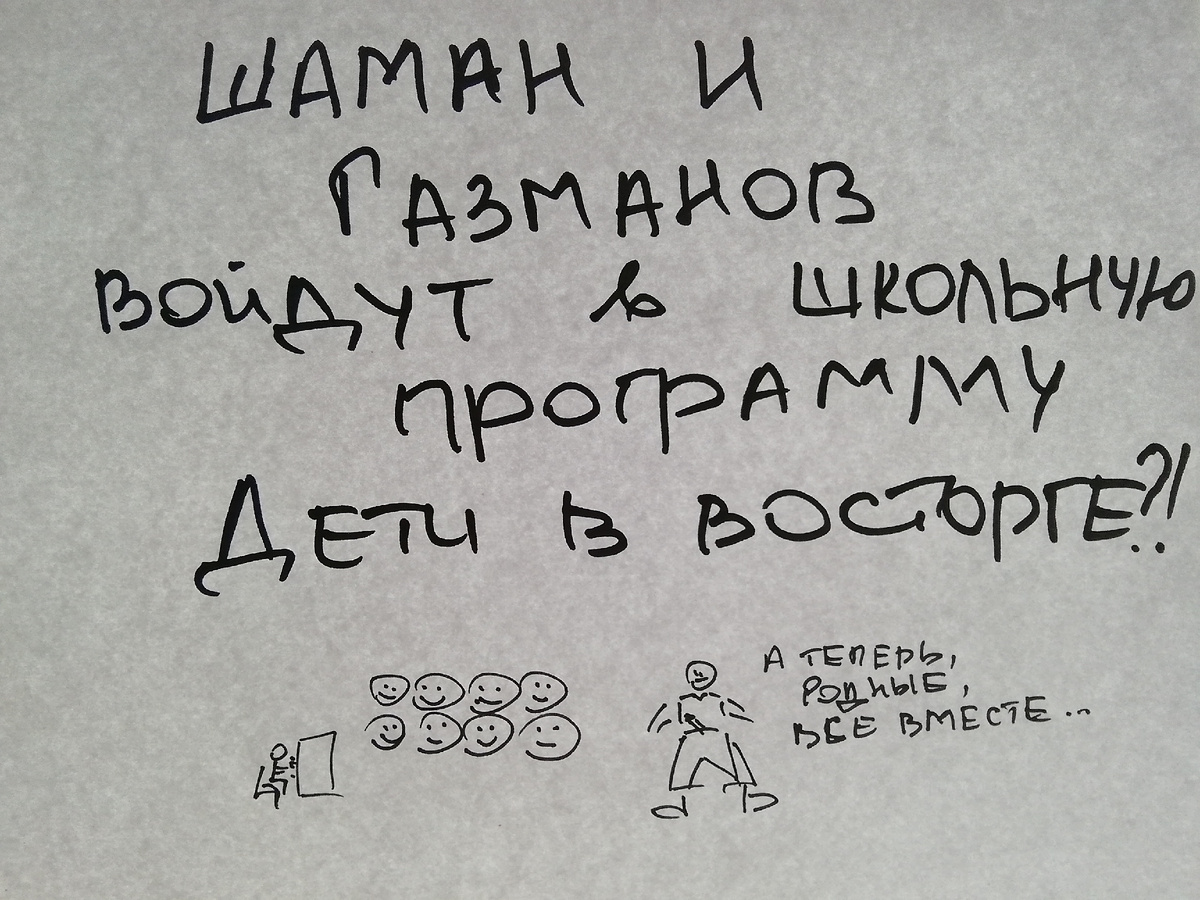 ШАМАН И
ГАЗМАНОВ
ВОЙДУТ в ШКОЛЬНУЮ
ПРОГРАММУ
ДЕТИ В ВОСТОРГЕ?!
А ТЕПЕРЬ,
РОДНЫЕ,
ВСЕ ВМЕСТЕ..